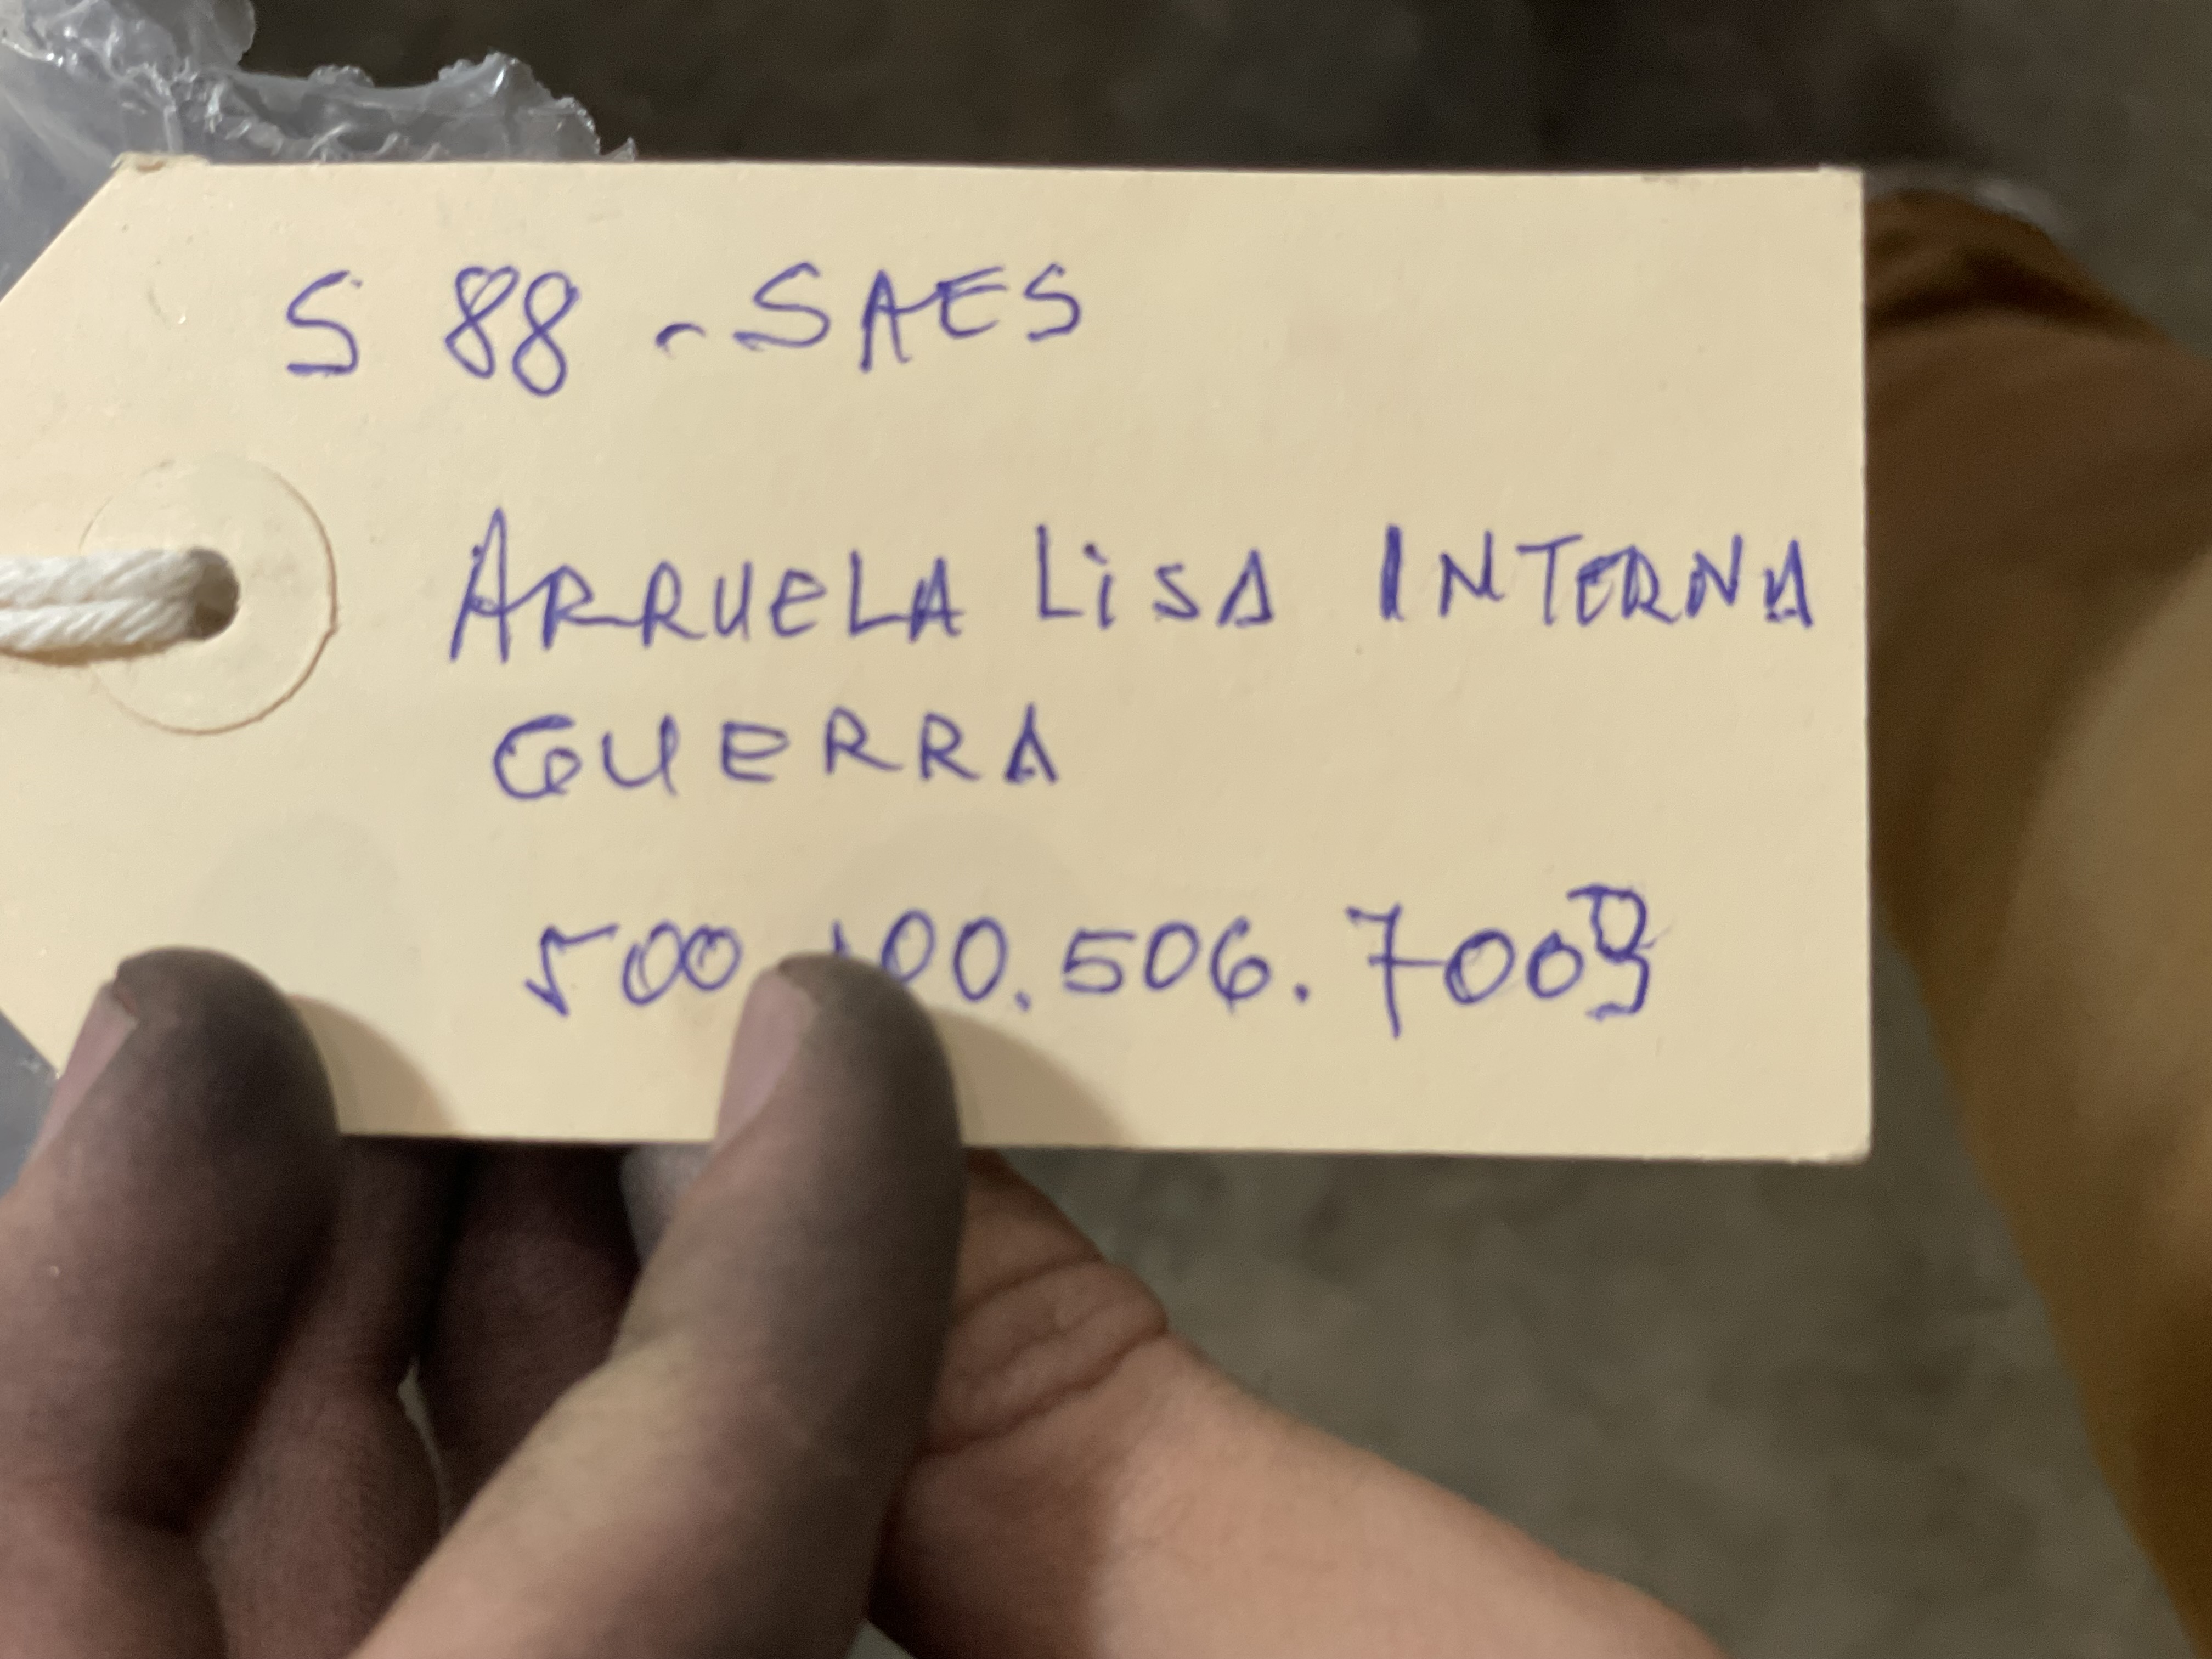 S 88 - SAES
ARRUELA LiSA INTERNA
GUERRA
500 100.506.7009